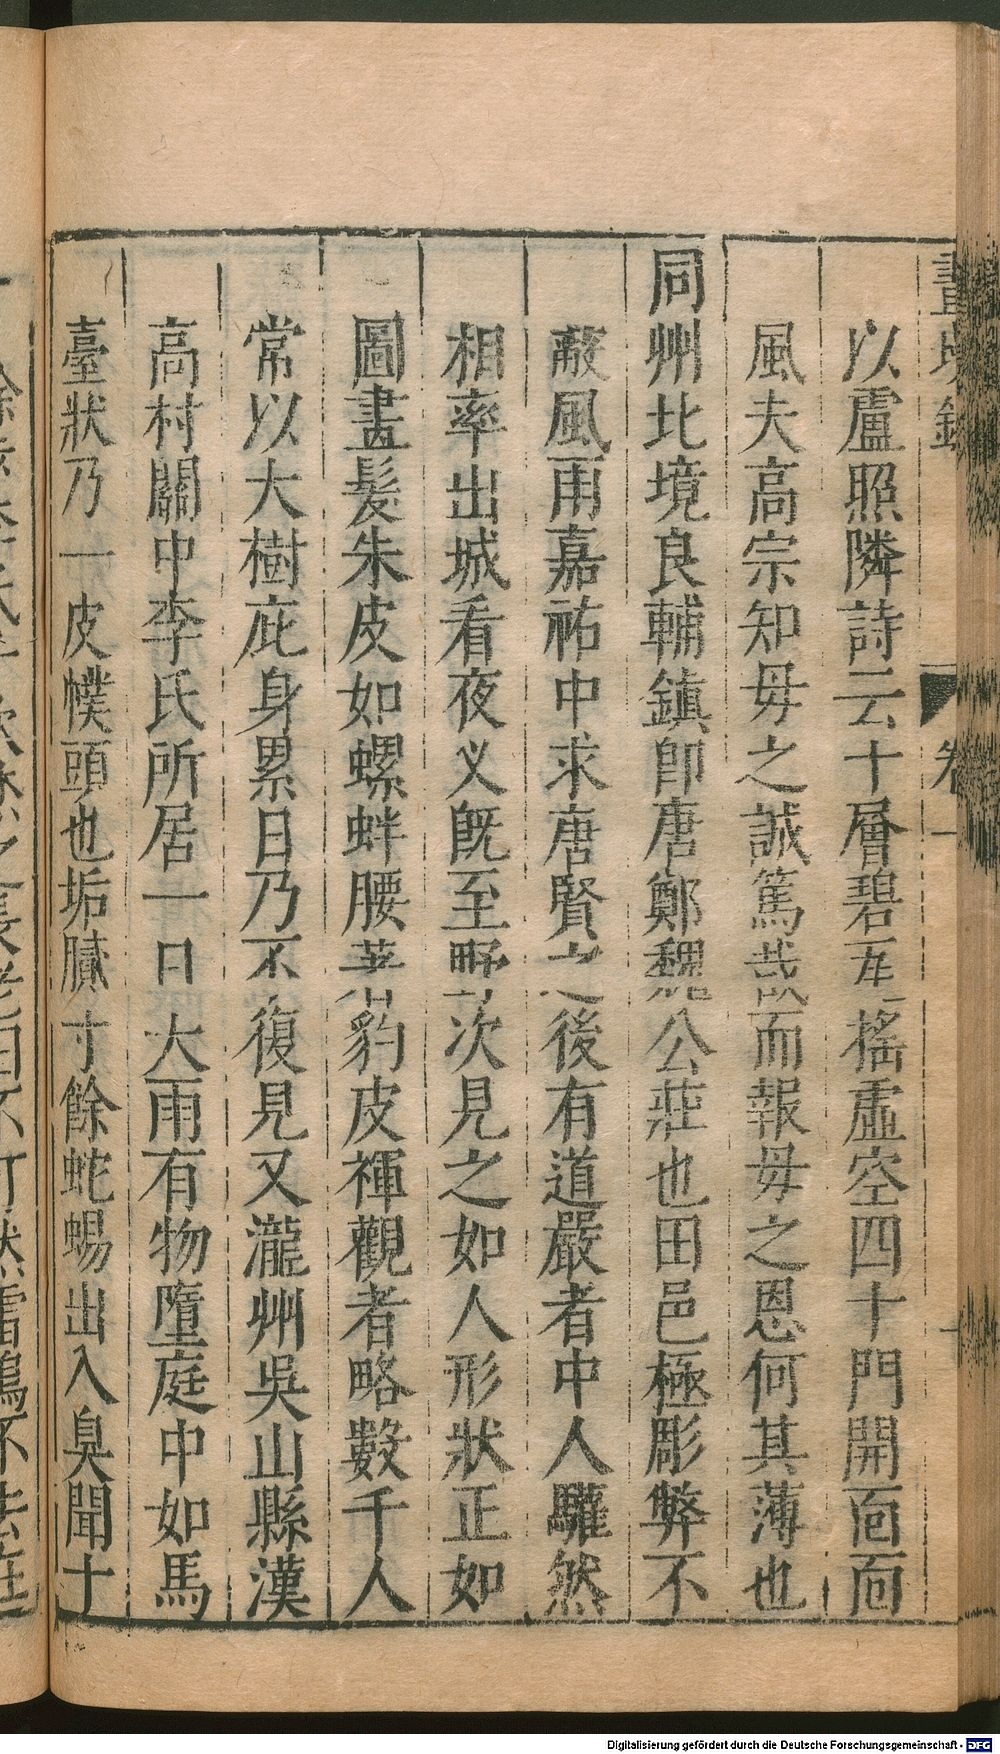 以盧照隣詩云十層碧瓦搖虛空四十門開面面
風夫高宗知毋之誠篤哉而報毋之恩何其薄也
同州北境良輔鎮卽唐鄭魏公莊也田邑極彫弊不
蔽風雨嘉祐中求唐賢之後有道嚴者中人驩然
相率出城看夜义旣至野次見之如人形狀正如
圖畫髮朱皮如螺蚌腰著豹皮褌觀者略數千人
常以大樹庇身累日乃不復見又瀧州吳山縣漢
高村關中李氏所居一日大雨有物墮庭中如馬
臺狀乃一皮幞頭也垢膩寸餘蛇蜴出入臭聞十
卷一
Digitalisierung gefördert durch die Deutsche Forschungsgemeinschaft - DFG